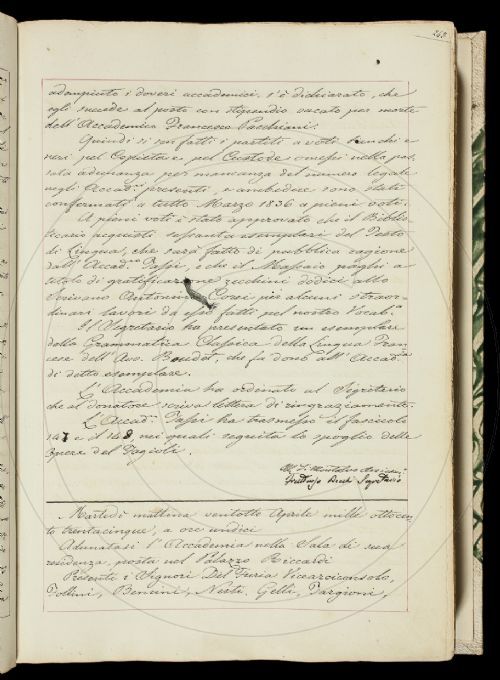 263
adempiuto i doveri accademici, s'è dichiarato, che
egli succede al posto con stipendio vacato per morte
dell'Accademico Francesco Pacchiani.
Quindi si son fatti i partiti a voti bianchi e
neri pel Copista e pel Custode omessi nella pas-
sata adunanza per mancanza del numero legale
negli Accad.ci presenti, e ambedue sono stati
confermati a tutto Marzo 1836 a pieni voti.
A pieni voti è stato approvato che il Biblio-
tecario acquisti sessanta esemplari del Testo
di Lingua, che sarà fatto di pubblica ragione
dall'Accad.co Tassi, e che il Massaio paghi a
titolo di gratificazione zecchini dodici allo
Scrivano Antonino Corsi per alcuni straor-
dinari lavori da esso fatti pel nostro Vocab.o
Il Segretario ha presentato un esemplare
della Grammatica Classica della Lingua Fran-
cese dell'Avv. che fa dono all'Accad.ia
di detto esemplare.
L'Accademia ha ordinato al Segretario
che al donatore scriva lettera di ringraziamento.
L'Accad.co Tassi ha trasmesso il fascicolo
147 e il 148 nei quali seguita lo spoglio delle
Opere del Fagioli.
Segretario
Martedì mattina ventotto Aprile mille ottocen-
to trentacinque, a ore undici
Adunatasi l'Accademia nella Sala di sua
residenza, posta nel Palazzo Riccardi
Presenti i Signori Del Furia Vicearciconsolo,
Follini, Bencini, Nesti, Gelli, Targioni,